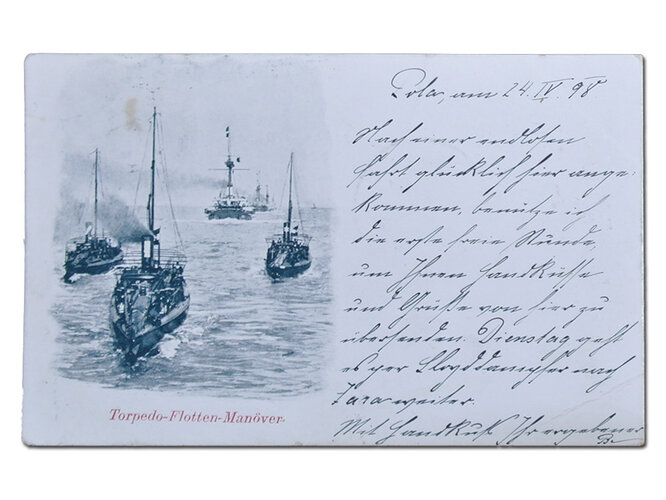 Pola, am 24. IV. 98
Nach einer endlosen
Fahrt glücklich hier ange-
kommen, benütze ich
die erste freie Stunde,
um Ihnen Handküsse
und Grüße von hier zu
übersenden. Dienstag geht
es per Lloyddampfer nach
Zara weiter.
Mit Handkuß Ihr ergebener
Torpedo-Flotten-Manöver.